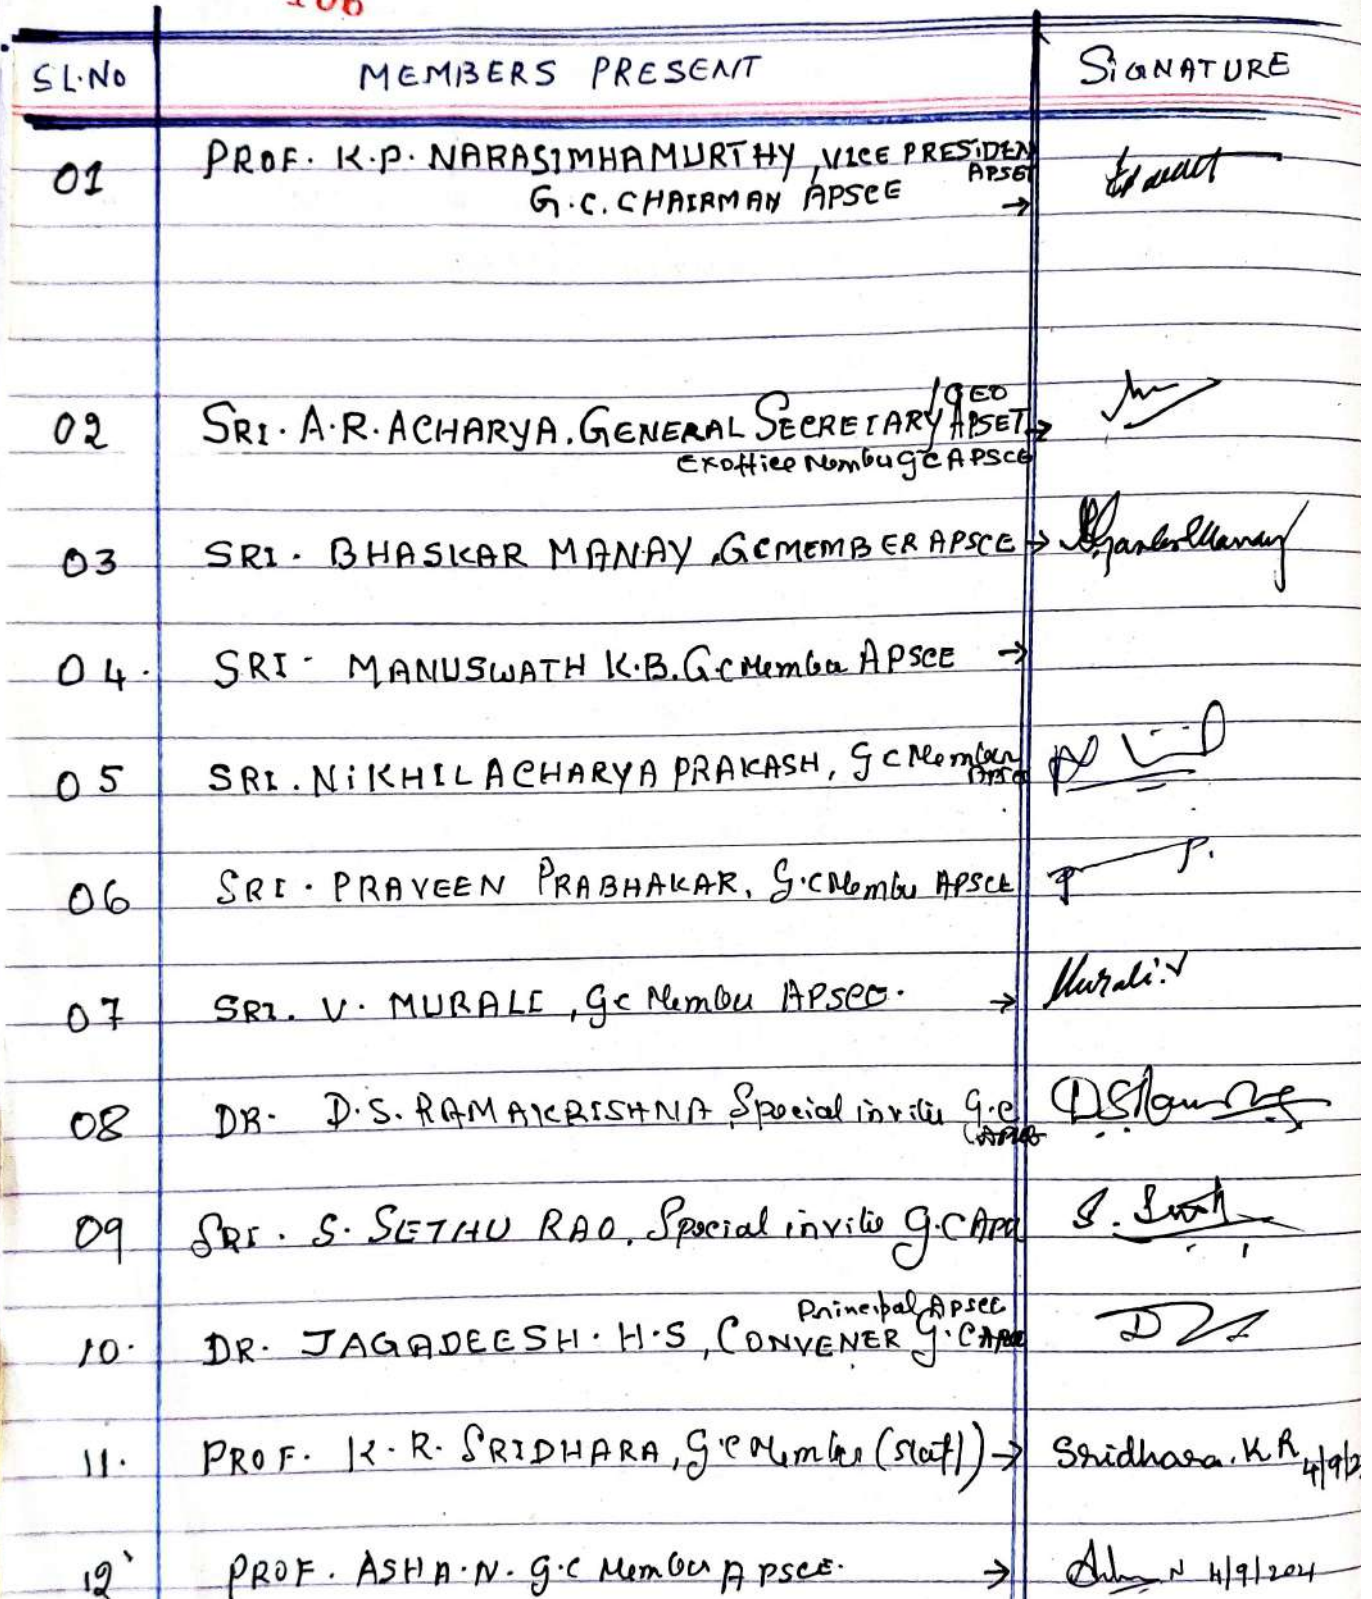 106
SL.No MEMBERS PRESENT SIGNATURE
01 PROF. K.P. NARASIMHAMURTHY, VICE PRESIDEN
APSET
G.C. CHAIRMAN APSCE →
/CEO
02 SRI. A.R. ACHARYA. GENERAL SECRETARY APSET →
Exoffice Membu gc APSCE
03 SRI. BHASKAR MANAY, GCMEMBER APSCE →
04. SRI. MANUSWATH K.B. G.C Memba APSCE →
05 SRI. NIKHIL ACHARYA PRAKASH, gc Member
APSCE
06 SRI. PRAVEEN PRABHAKAR, G.C Membu APSCE
07 SRI. V. MURALI, gc Membu APSCE. → Murali.V
08 DR. D.S. RAMAKRISHNA Special invitie G.C
09 SRI. S. SETHU RAO, Special invitie G.C
Principal Apsce
10. DR. JAGADEESH.H.S, CONVENER G.C
11. PROF. K.R. SRIDHARA, G.C Member (staff) → Sridhara.K.R 4/9/2
12 PROF. ASHA.N. g.c Membu APSCE. → N 4/9/2021